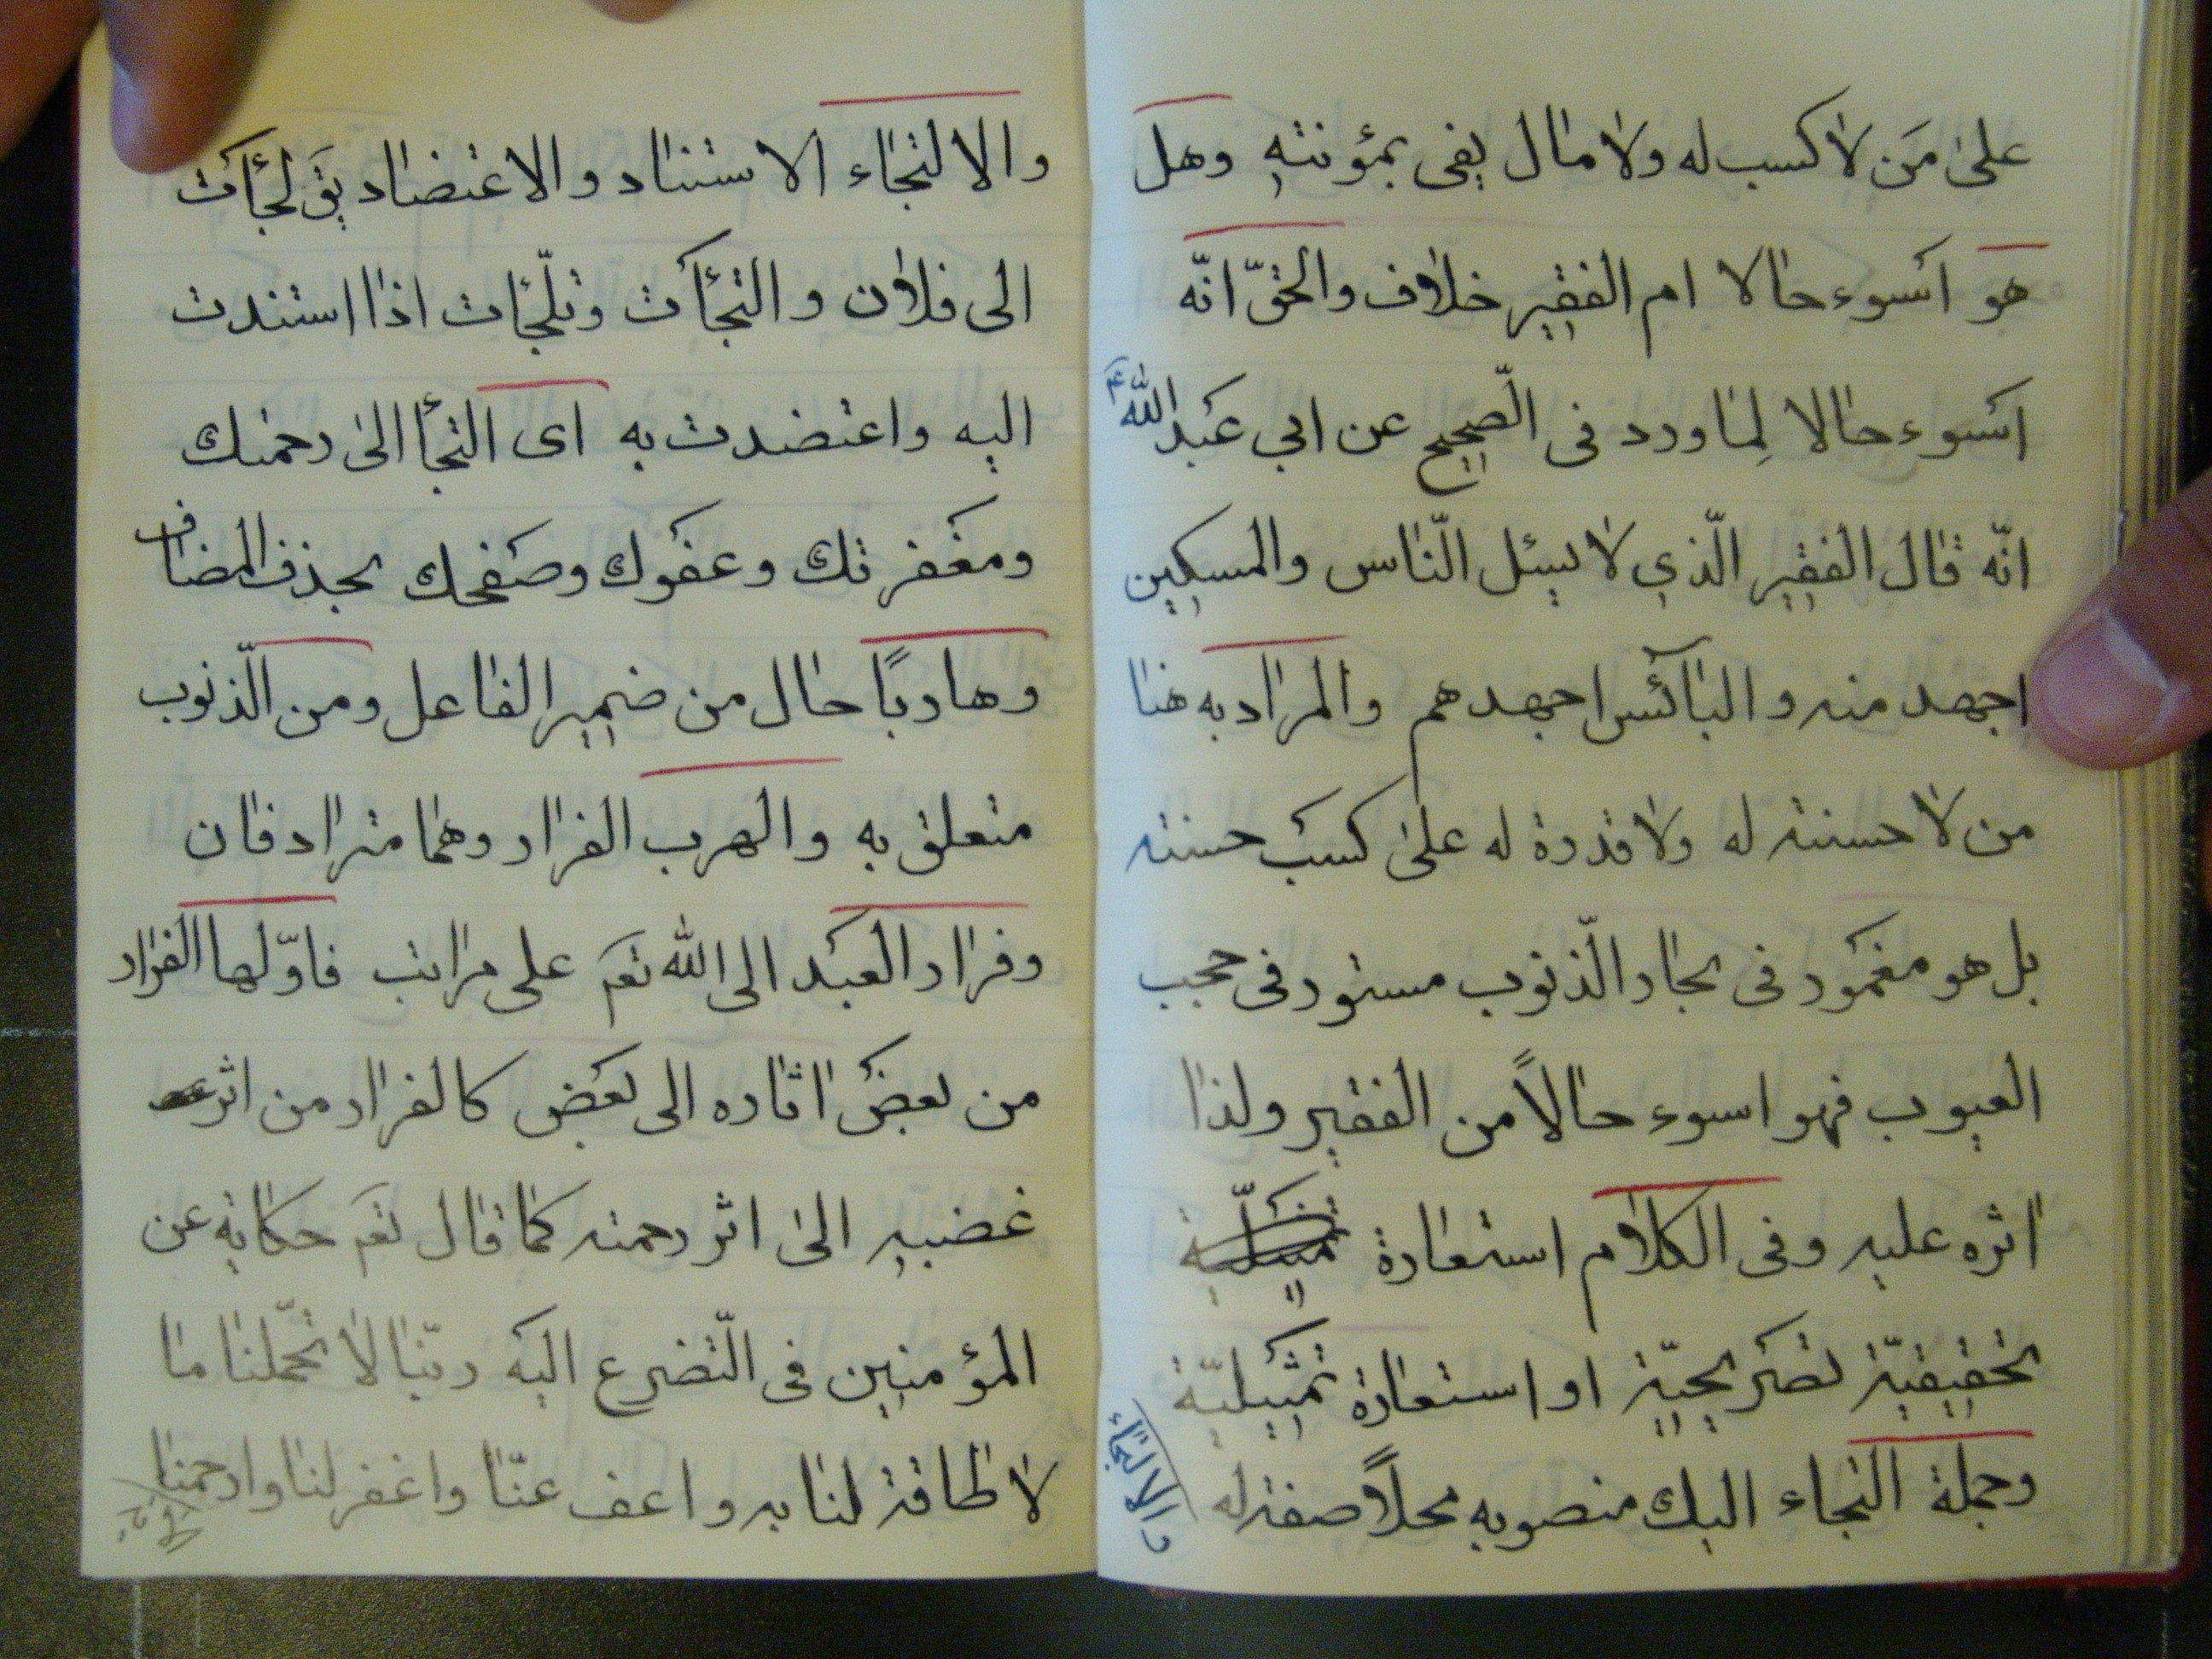 على مَن لا كسب له ولا مال يفى بمؤنته وهل
هو اسوء حالا ام الفقير خلاف والحقّ انّه
اسوء حالا لِما ورد فى الصّحيح عن ابي عبد اللّه ع
انّه قال الفقير الّذي لا يسئل النّاس والمسكين
اجهد منه والبائس اجهدهم والمراد به هنا
من لا حسنة له ولا قدرة له على كسب حسنة
بل هو مغمور فى بحار الذّنوب مستور فى حجب
العيوب فهو اسوء حالاً من الفقير ولذا
اثره عليه وفى الكلام استعارة
تحقيقيّة تصريحيّة او استعارة تمثيليّة
وجملة التجاء اليك منصوبه محلاً صفة له
والالتجاء
والالتجاء الاستناد والاعتضاد يق لجَأت
الى فلان والتجأت وتلجّأت اذا استندت
اليه واعتضدت به اى التجأ الى رحمتك
ومغفرتك وعفوك وصفحك بحذف المضاف
وهاربًا حال من ضمير الفاعل ومن الذّنوب
متعلق به والهرب الفرار وهما مترادفان
وفرار العبد الى اللّه تعم على مراتب فاوّلها الفرار
من بعض اثاره الى بعض كالفرار من اثر
غضبه الى اثر رحمته كما قال تعم حكاية عن
المؤمنين فى التّضرع اليه ربّنا لا تحمّلنا ما
لا طاقة لنا به واعف عنّا واغفر لنا وارحمنا